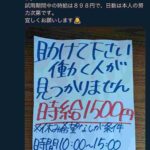 試用期間中の時給は898円で、日数は本人の努
力次第です。
宜しくお願いします🙇
助けて下さい
働く人が
見つかりません
時給1500円
時間10:00〜15:00